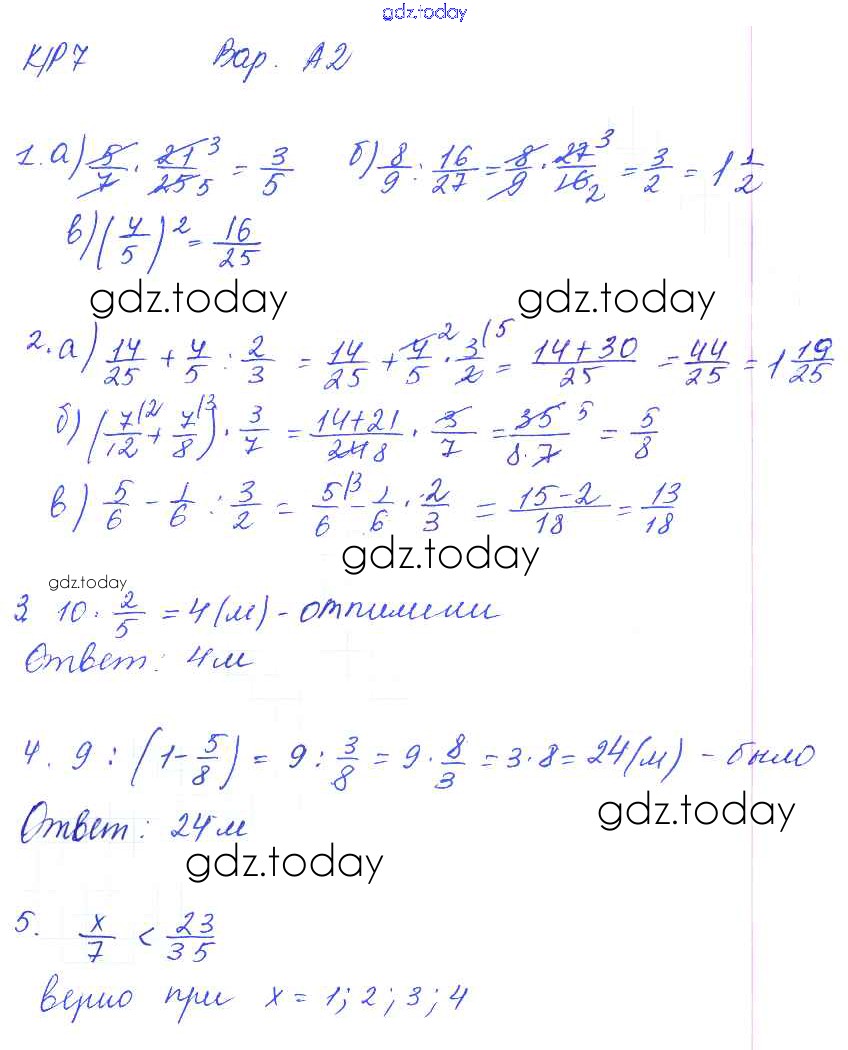 gdz.today
К/Р 7 Вар. А2
1. а) 5/7 · 21/25 = 3/5 б) 8/9 : 16/27 = 8/9 · 27/16 = 3/2 = 1 1/2
в) (4/5)² = 16/25
gdz.today gdz.today
2. а) 14/25 + 4/5 : 2/3 = 14/25 + 4/5 · 3/2 = (14+30)/25 = 44/25 = 1 19/25
б) (7/12 + 7/8) · 3/7 = (14+21)/24 · 3/7 = 35/(8·7) = 5/8
в) 5/6 - 1/6 : 3/2 = 5/6 - 1/6 · 2/3 = (15-2)/18 = 13/18
gdz.today
gdz.today
3 10 · 2/5 = 4 (м) - отпилили
Ответ: 4 м
4. 9 : (1 - 5/8) = 9 : 3/8 = 9 · 8/3 = 3 · 8 = 24 (м) - было
gdz.today
Ответ: 24 м
gdz.today
5. x/7 < 23/35
верно при x = 1; 2; 3; 4